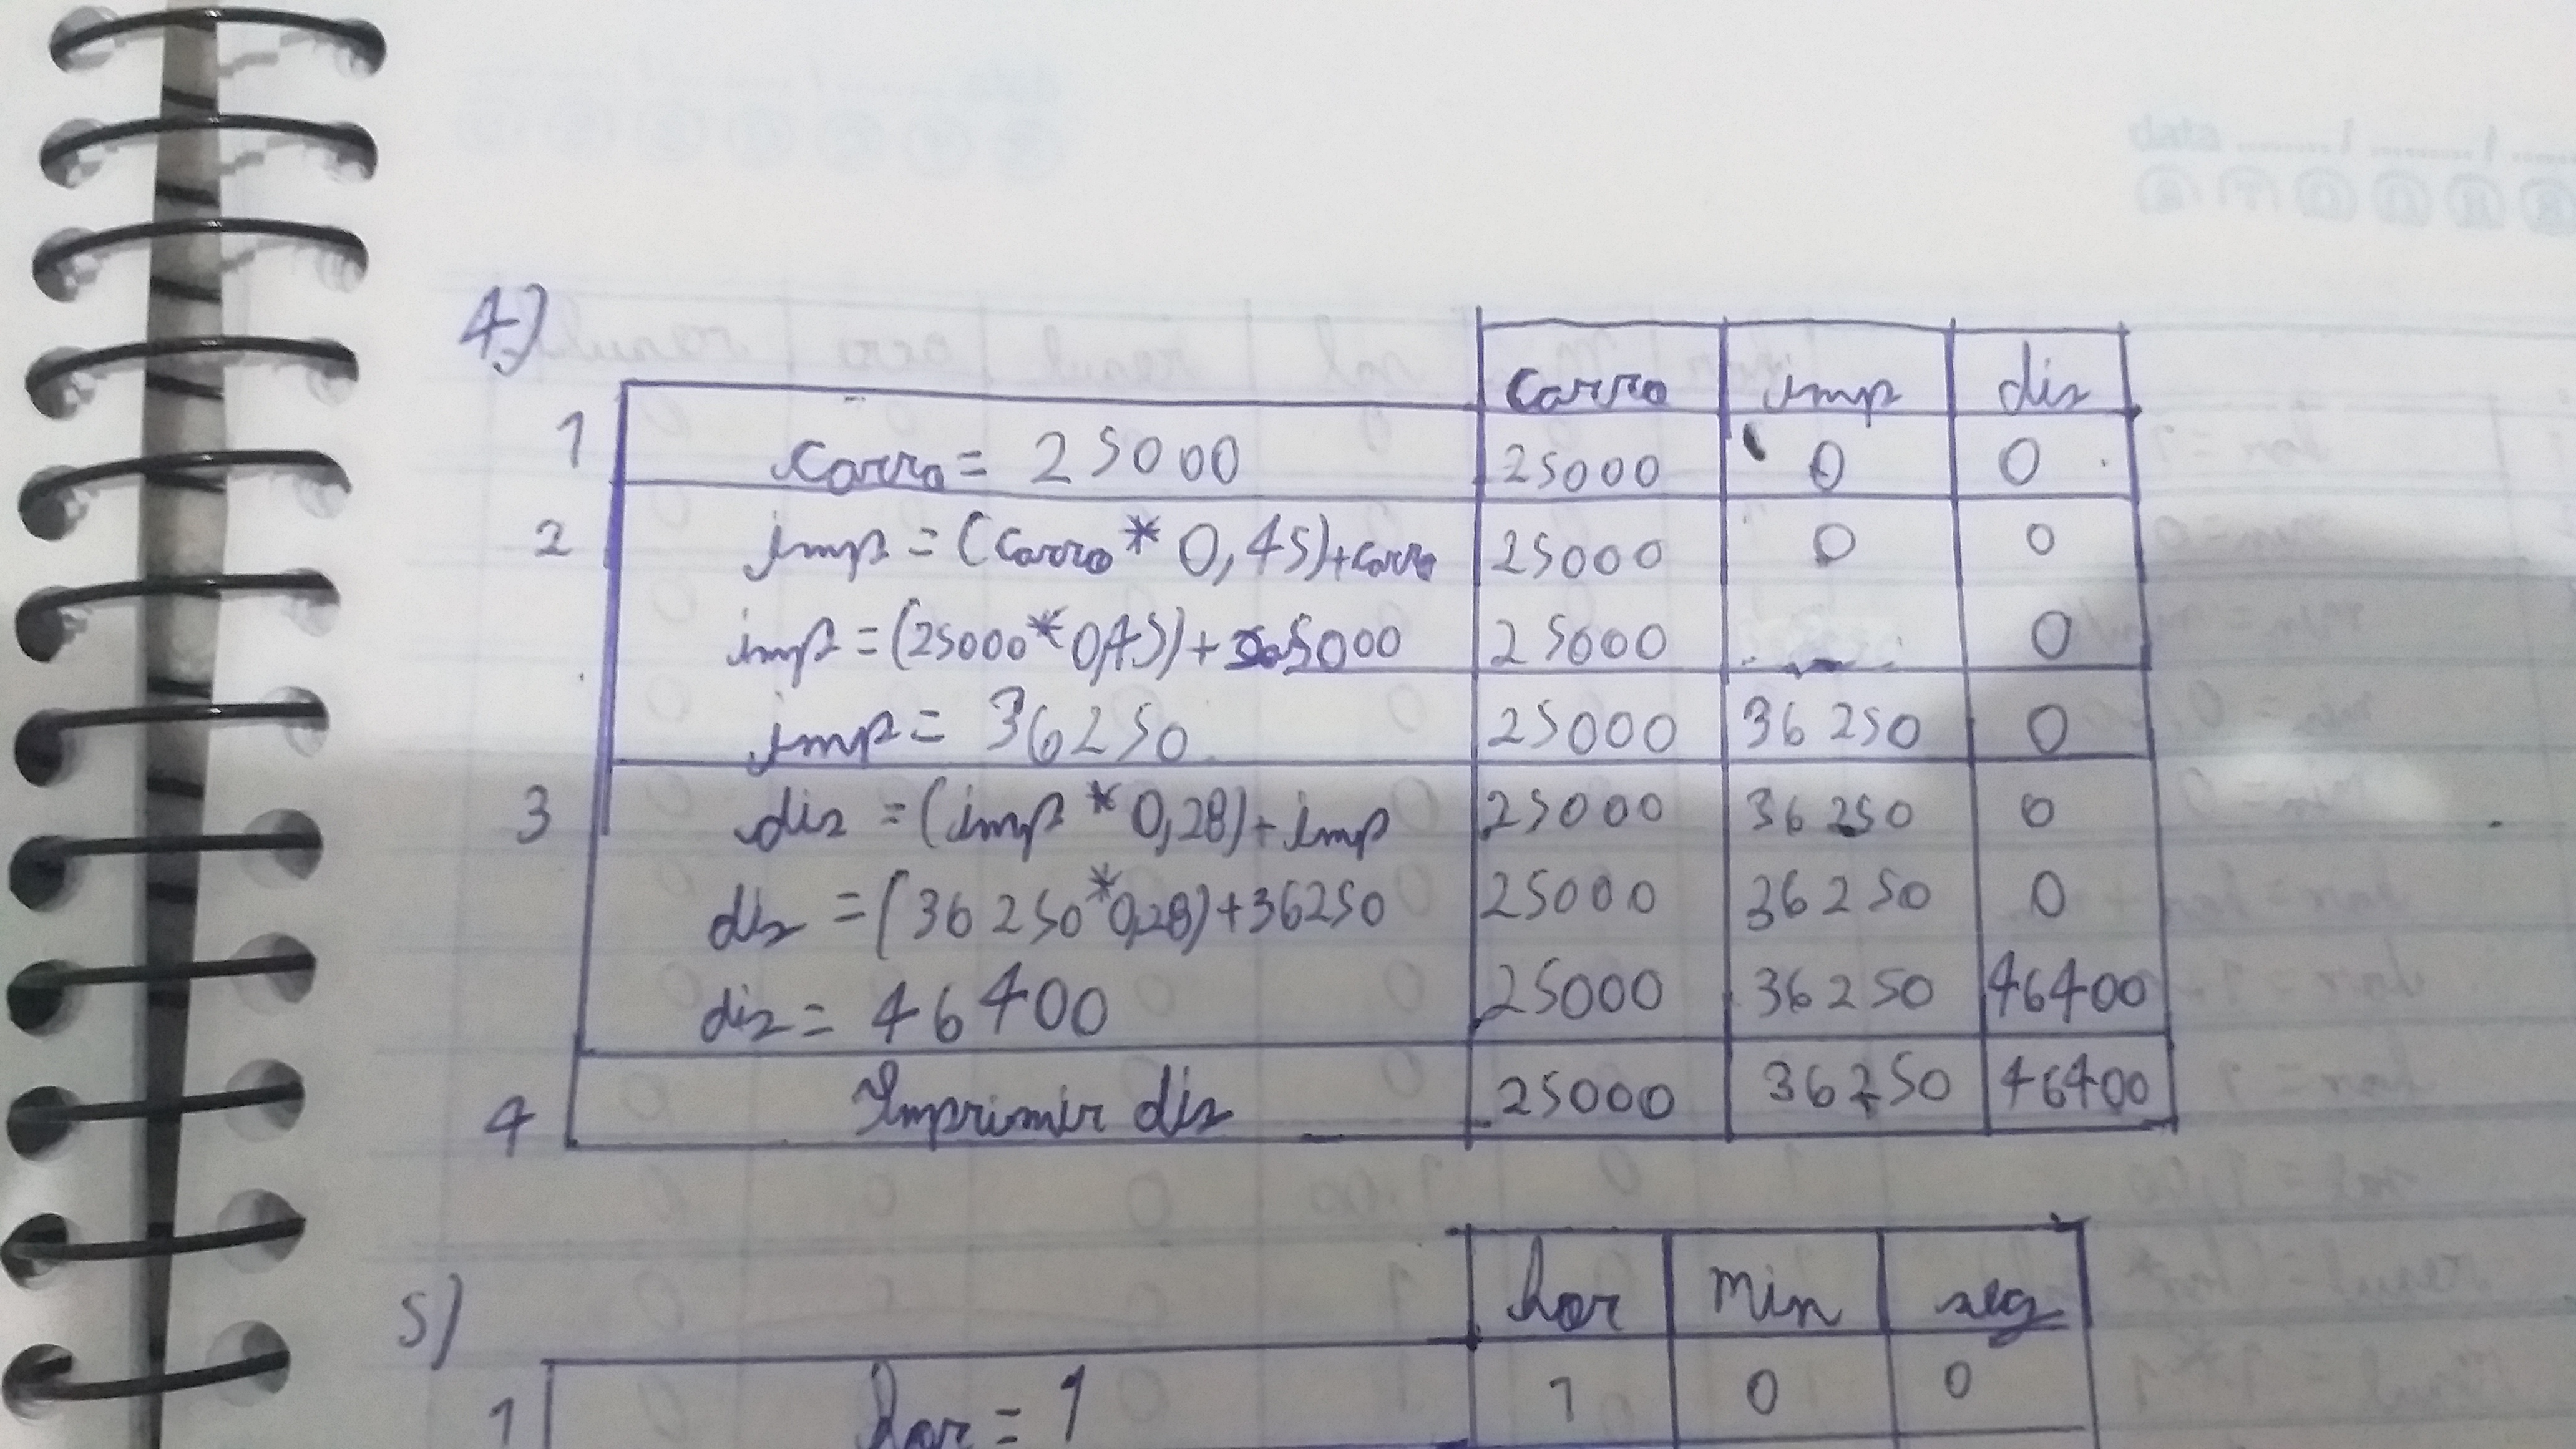 data
4.)
carro imp dis
1 carro = 25000 25000 0 0
2 imp = (carro * 0,45)+carro 25000 0 0
imp = (25000*0,45)+25000 25000 0
imp = 36250 25000 36250 0
3 dis = (imp * 0,28)+imp 25000 36250 0
dis = (36250*0,28)+36250 25000 36250 0
dis = 46400 25000 36250 46400
4 Imprimir dis 25000 36250 46400
5)
hor min seg
1 hor = 1 1 0 0